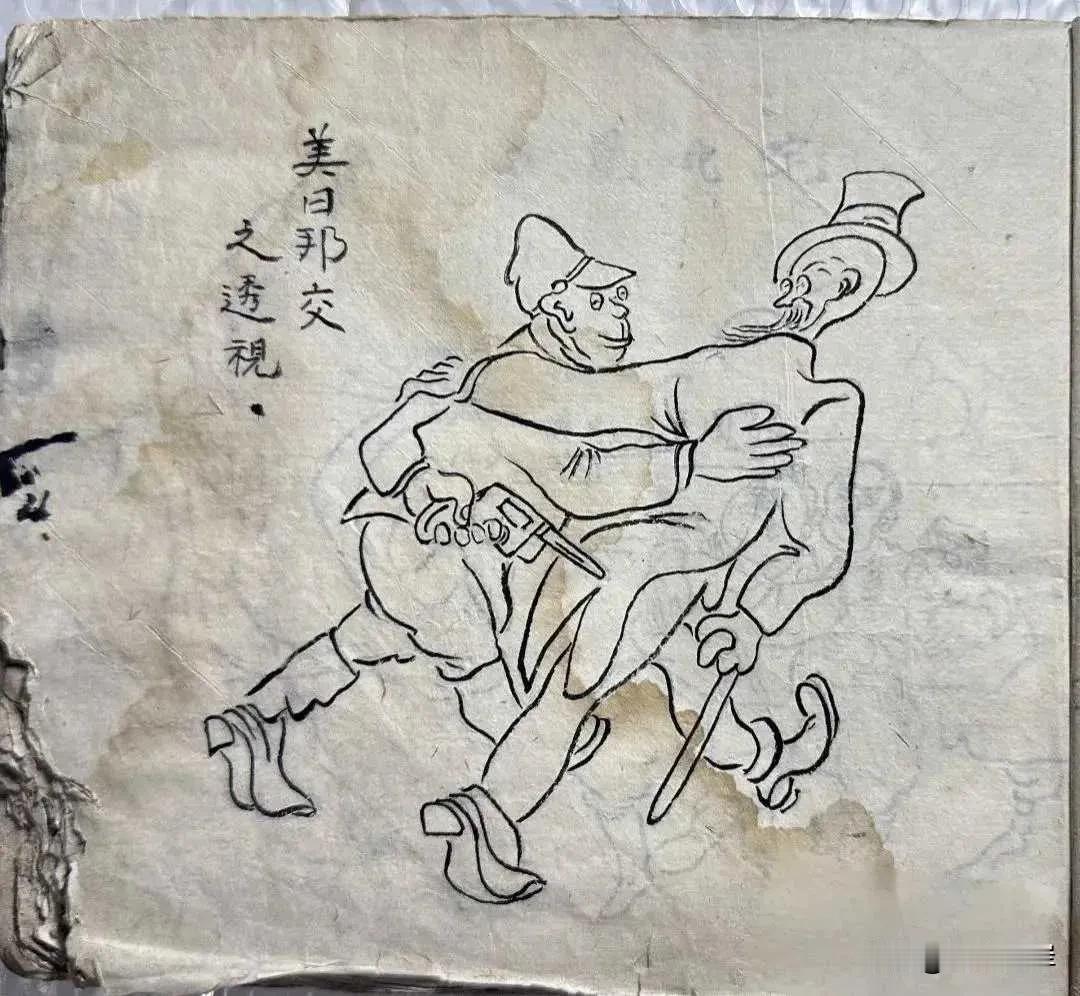 美日邦交
之透視.